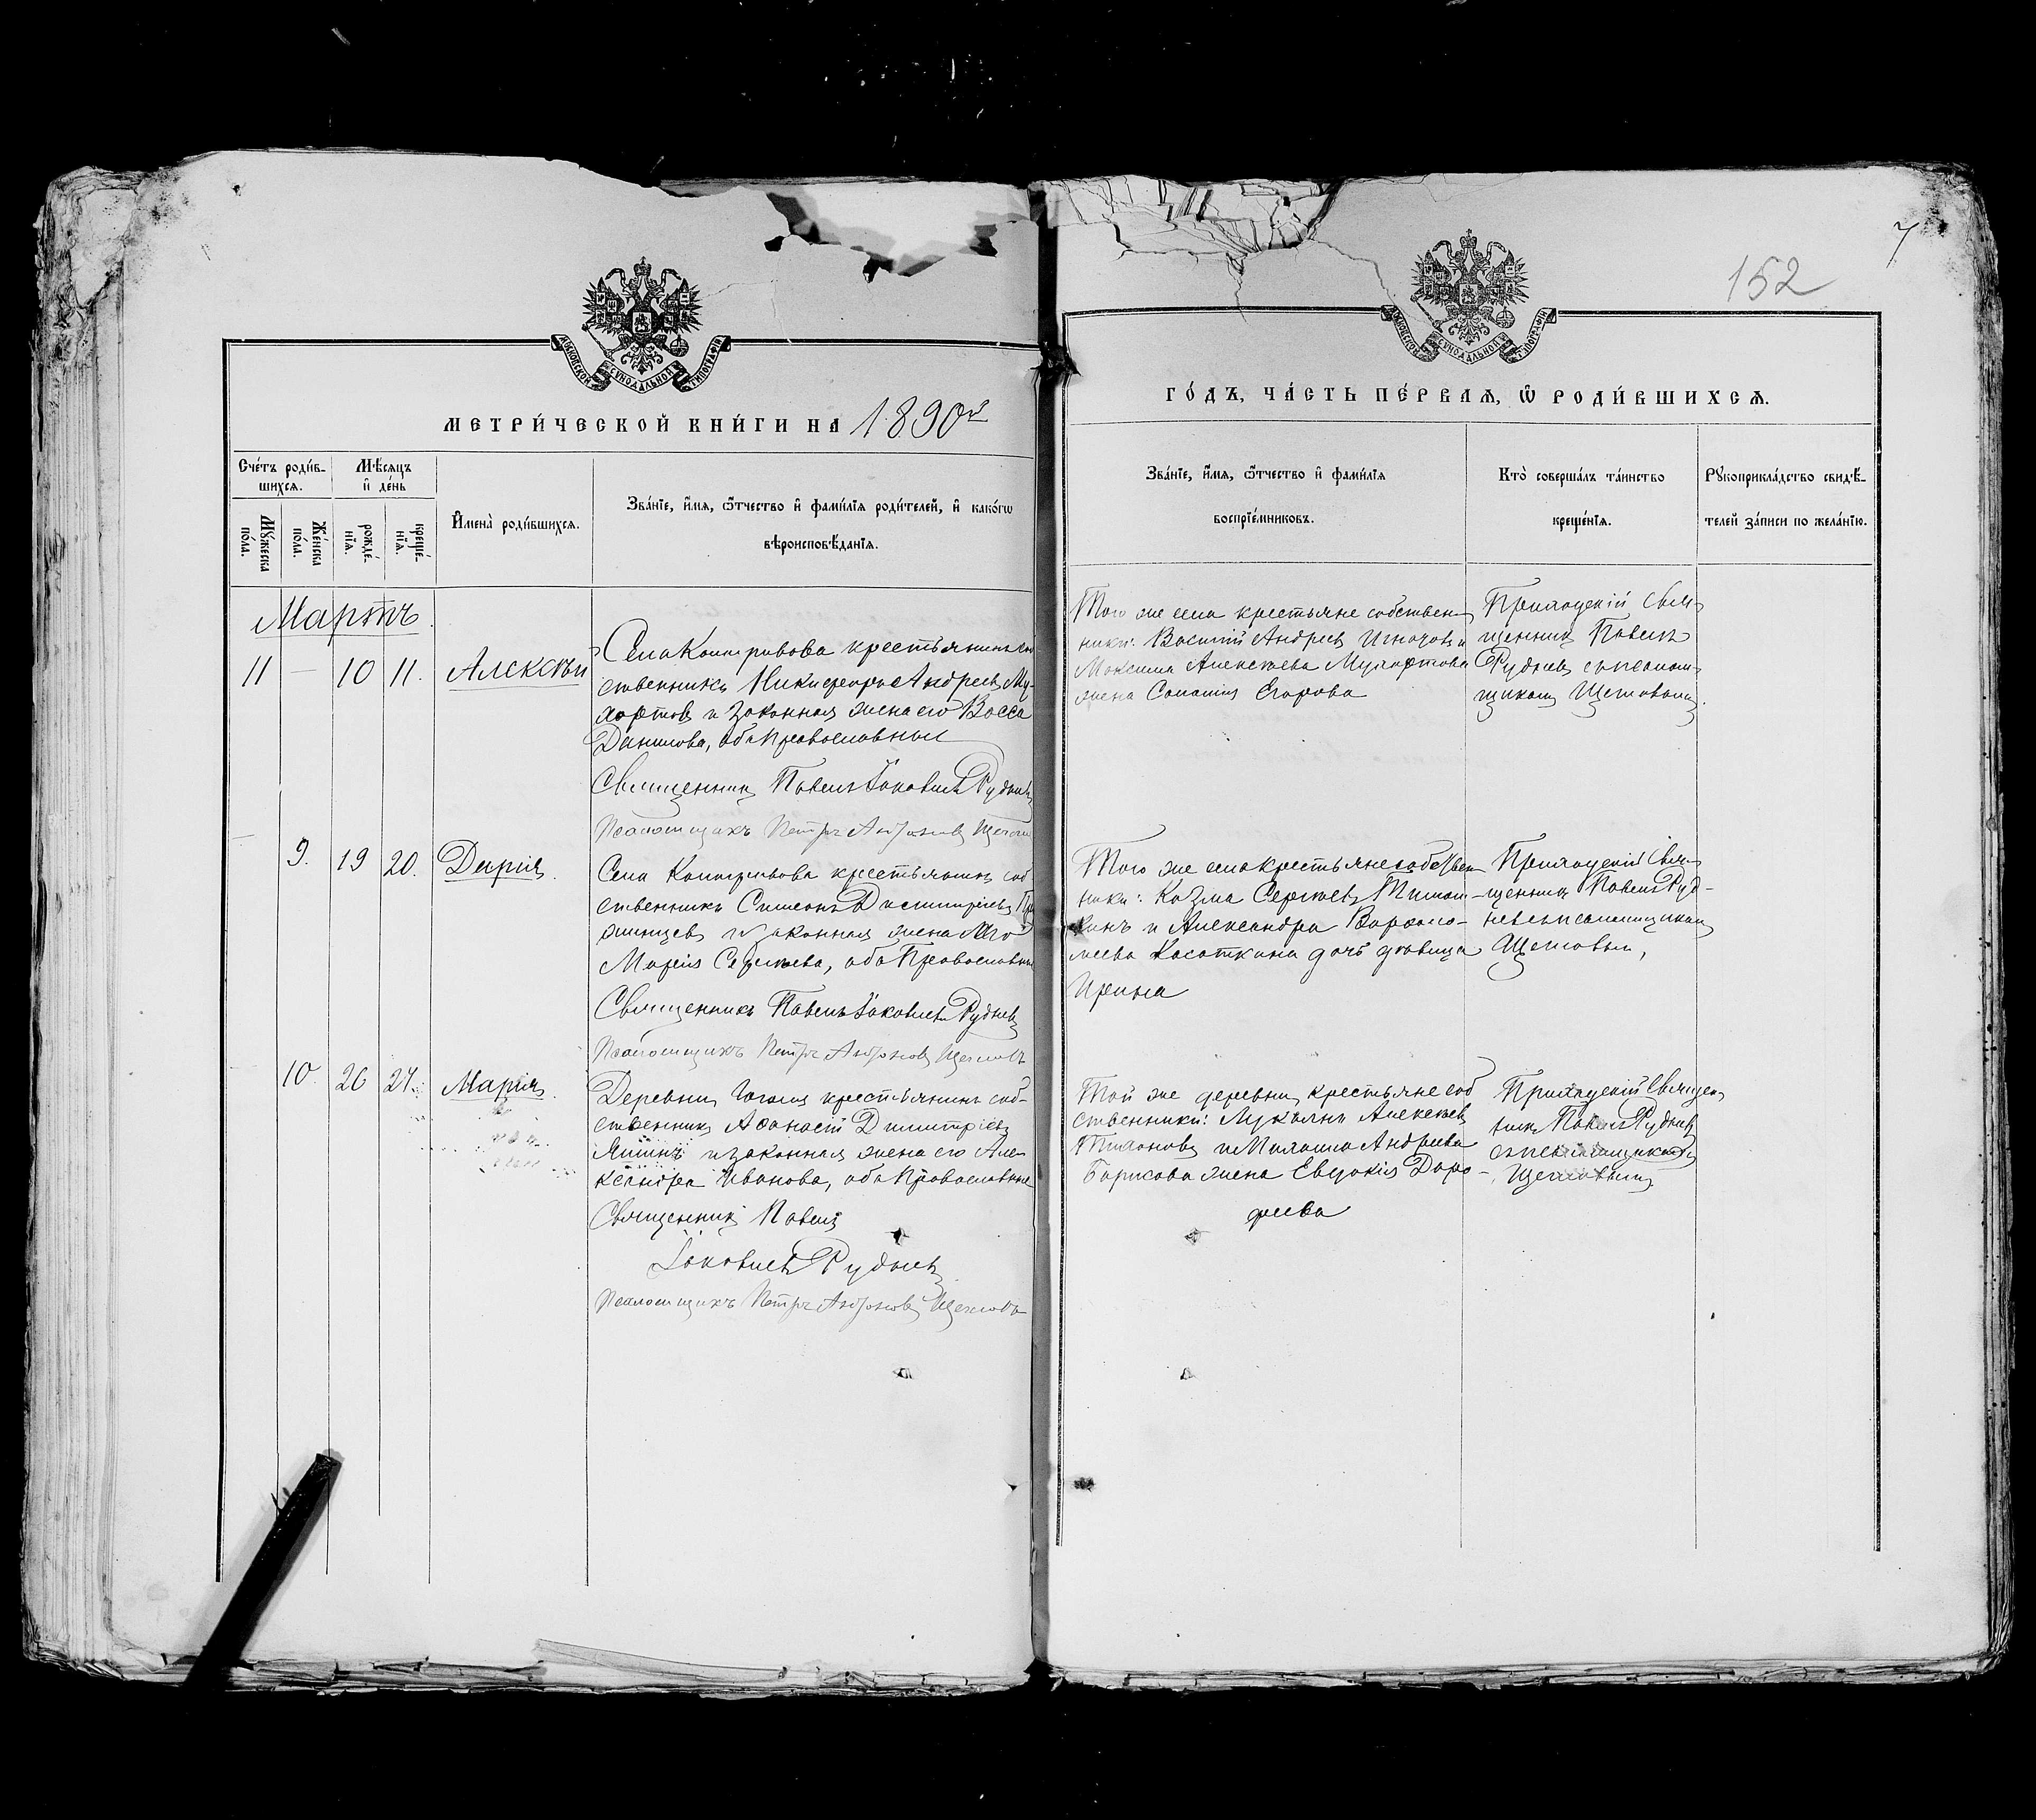 7
152
МОСКОВСКОЙ СѴНОДАЛЬНОЙ ТИПОГРАФІИ
МОСКОВСКОЙ СѴНОДАЛЬНОЙ ТИПОГРАФІИ
МЕТРИ́ЧЕСКОЙ КНИ́ГИ НА 1890й
ГО́ДЪ, ЧА́СТЬ ПЕ́РВАѦ, Ѽ РОДИ́ВШИХСѦ.
Сче́тъ роди́в-
шихсѧ.
Мꙋ́жеска
по́ла.
Же́нска
по́ла.
Мѣ́сѧцъ
и҆ де́нь
рожде́-
нїѧ.
креще́-
нїѧ.
И҆мена̀ роди́вшихсѧ.
Зва́нїе, и҆́мѧ, ѻ҆́тчество и҆ фами́лїѧ роди́телей, и҆ како́гѡ
вѣроисповѣ́данїѧ.
Зва́нїе, и҆́мѧ, ѻ҆́тчество и҆ фами́лїѧ
воспрїе́мниковъ.
Кто̀ соверша́лъ та́инство
креще́нїѧ.
Рꙋкоприкла́дство свидѣ́-
телей за́писи по жела́нїю.
Мартъ.
11 — 10 11. Алексѣй
Села крестьянинъ соб
ственникъ Никифоръ Андреевъ Му-
хортовъ и законная жена его Васса
Данилова, оба православные
Священникъ Павелъ Іаковлевъ Рудневъ
Псаломщикъ Петръ
Того же села крестьяне собствен
ники: Василій Андреевъ Игнатовъ и
Максима Алексѣева Мухортова
жена Соломія Егорова
Приходскій Свя-
щенникъ Павелъ
Рудневъ съ псалом-
щикомъ
9. 19 20. Дарія.
Села крестьянинъ соб
ственникъ Симеонъ Димитріевъ
и законная жена его
Марія Сергѣева, оба Православные
Священникъ Павелъ Іаковлевъ Рудневъ
Псаломщикъ Петръ
Того же села крестьяне собствен
ники: Козма Сергѣевъ
и Александра Варфоло-
меева Касаткина дочь дѣвица
Ирина
Приходскій Свя-
щенникъ Павелъ Руд-
невъ съ псаломщикомъ
10. 26 27. Марія.
Деревни крестьянинъ соб-
ственникъ Аѳанасій Димитріевъ
и законная жена его Але-
ксандра Иванова, оба Православные
Священникъ Павелъ
Іаковлевъ Рудневъ
Псаломщикъ Петръ
Той же деревни крестьяне соб
ственники: Лукьянъ Алексѣевъ
Тихоновъ и Андреева
Борисова жена Евдокія Доро-
феева
Приходскій Священ
никъ Павелъ Рудневъ
съ псаломщикомъ